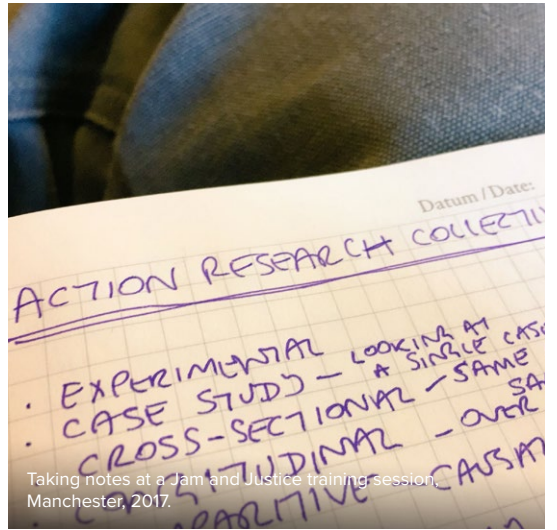 Datum / Date:
ACTION RESEARCH COLLECTI
• EXPERIMENTAL
• CASE STUDY – LOOKING AT
A SINGLE CASE
CROSS-SECTIONAL – SAME
SA
LONGITUDINAL – OVER
– CAUSA
Taking notes at a Jam and Justice training session,
Manchester, 2017.